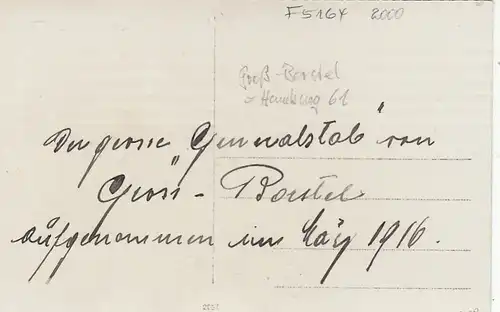 F5164 2000
Groß-Borstel
= Hamburg 61
Der grosse „Generalstab" von
Gross-Borstel
aufgenommen im März 1916.